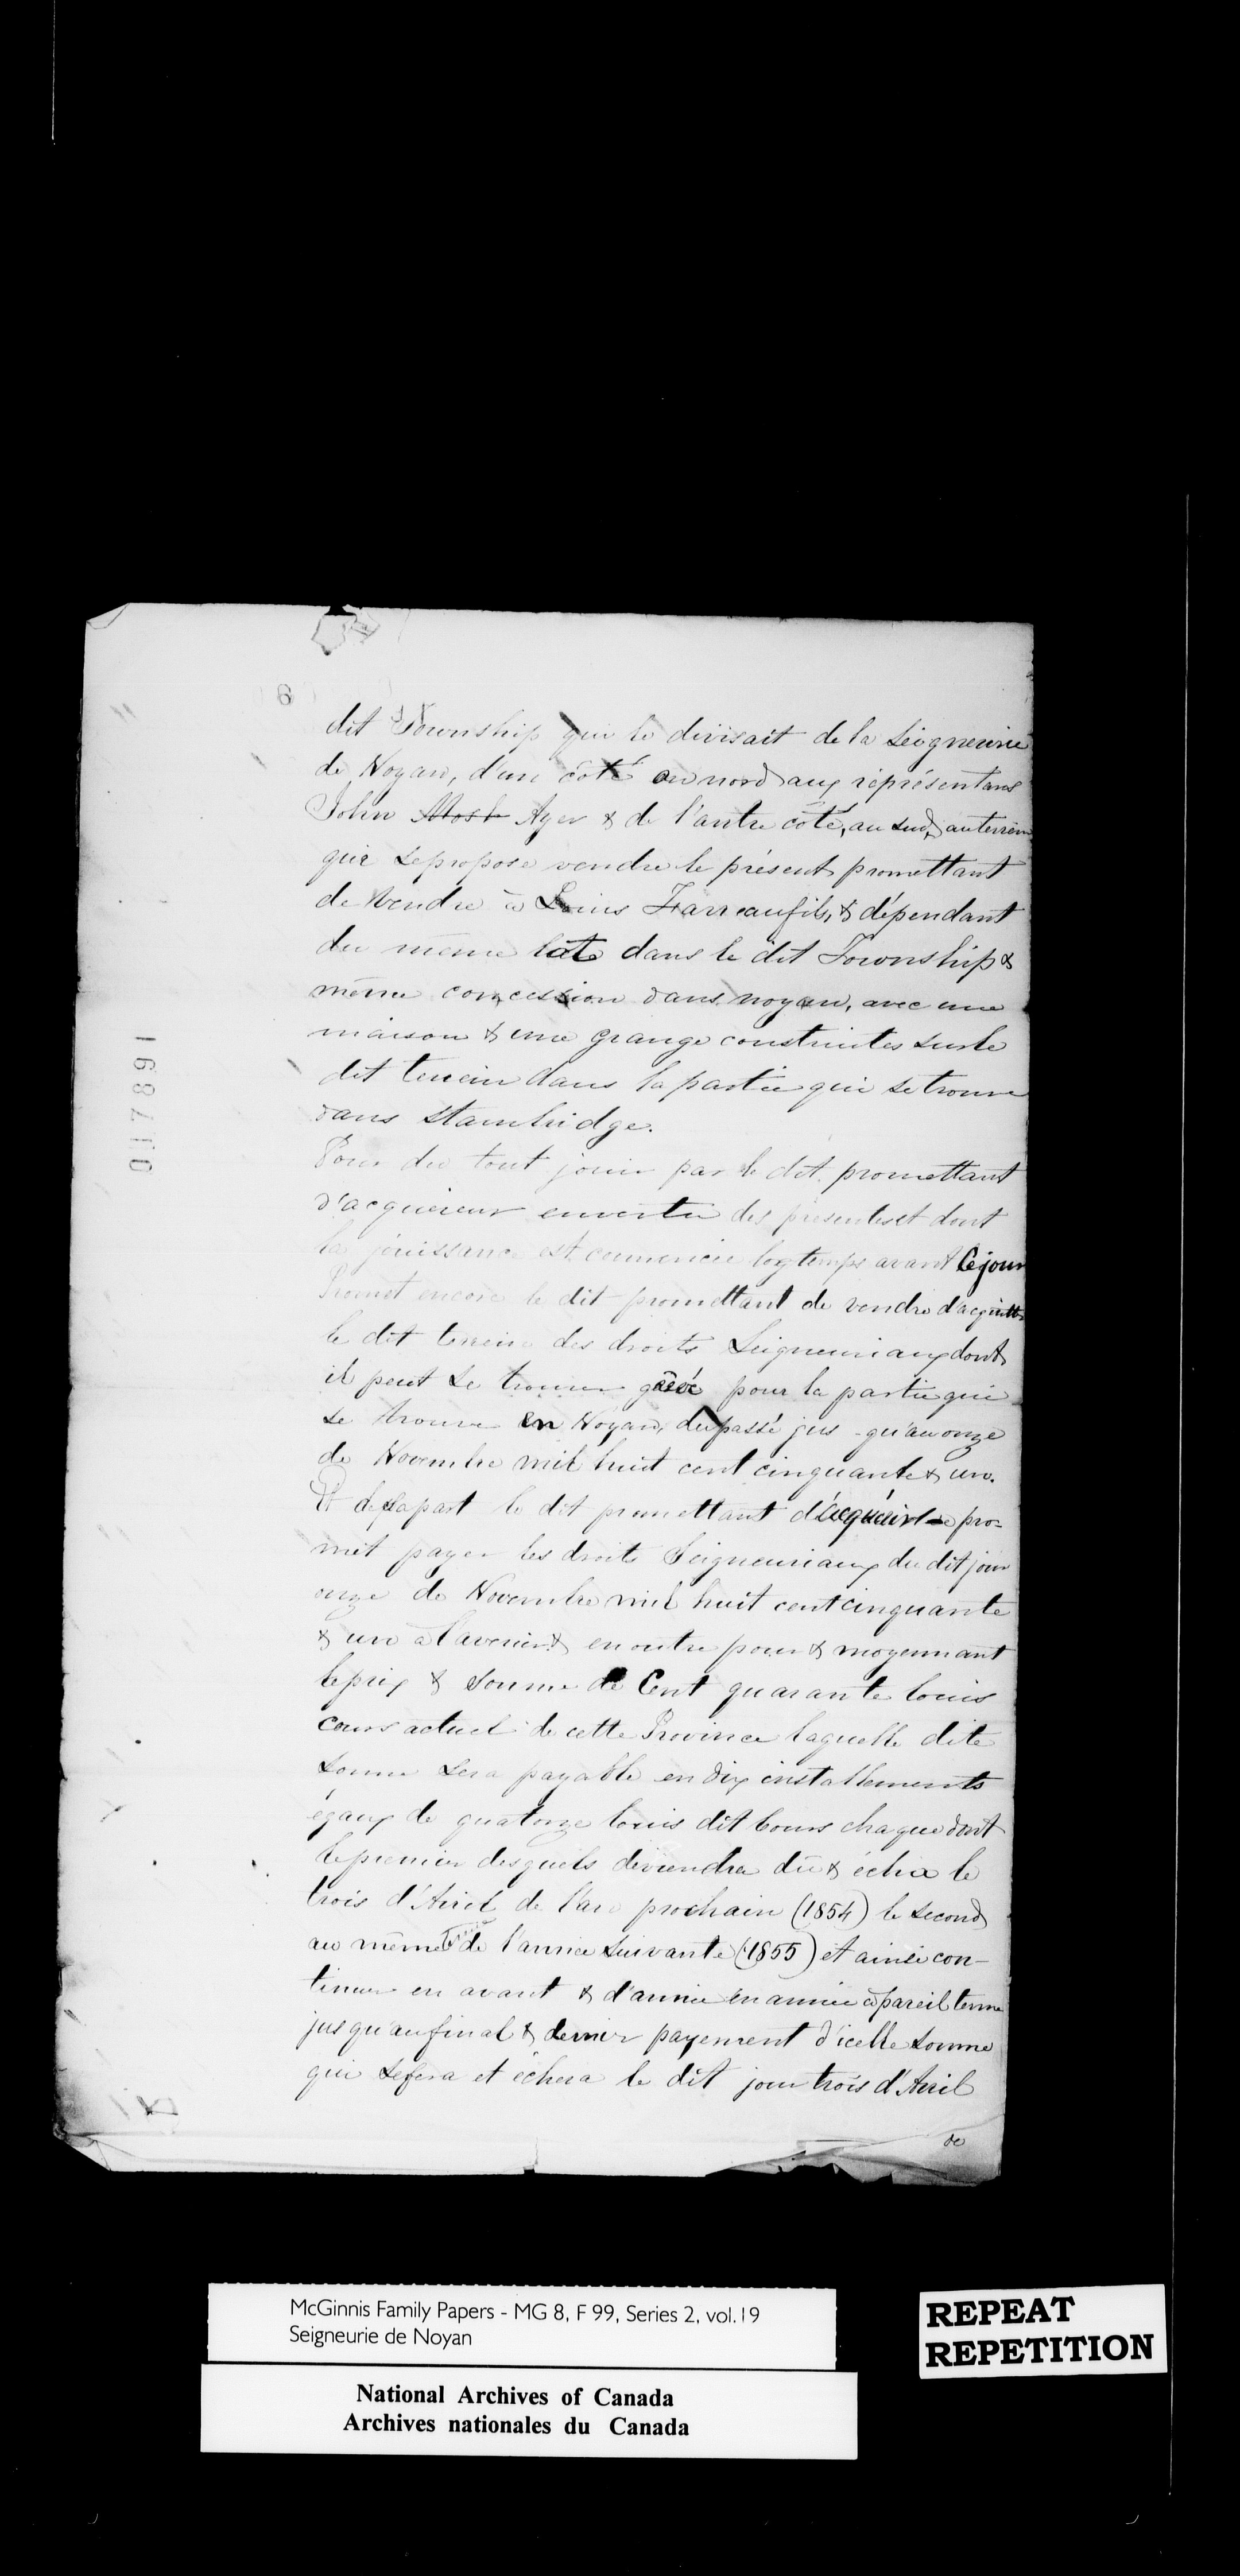 dit Township qui le divisait de la Seigneurie
de Noyan, d'un coté au nord aux représentans
John Ayer & de l'autre côté, au sud, au terrein
que se propose vendre le présent promettant
de vendre à Louis Farreau fils, & dépendant
du même lot dans le dit Township &
même concession dans noyan, avec une
maison & une grange construites sur le
dit terrein dans la partie qui se trouve
dans Stanbridge.
Pour du tout jouir par le dit promettant
d'acquérir en vertu des présentes et dont
la jouissance est commencée logtemps avant ce jour
Promet encore le dit promettant de vendre d'acquitter
le dit terrein des droits Seigneuriaux dont
il peut se trouver grévé pour la partie qui
se trouve en Noyan, du passé jus-qu'au onze
de Novembre mil huit cent cinquante & un.
Et de sa part le dit promettant d'acquérir pro-
met payer les droits Seigneuriaux du dit jour
onze de Novembre mil huit cent cinquante
& un à l'avenir & en outre pour & moyennant
le prix & somme de Cent quarante louis
cours actuel de cette Province laquelle dite
somme sera payable en dix installements
égaux de quatorze louis dit cours chaque dont
le premier desquels deviendra dû & échu le
trois d'Avril de l'an prochain (1854) le second
au même de l'année suivante (1855) et ainsi con-
tinuer en avant & d'année en année à pareil terme
jusqu'au final & dernier payement d'icelle somme
qui se fera et échera le dit jour trois d'Avril
de
6
017891
McGinnis Family Papers - MG 8, F 99, Series 2, vol.19
Seigneurie de Noyan
National Archives of Canada
Archives nationales du Canada
REPEAT
REPETITION